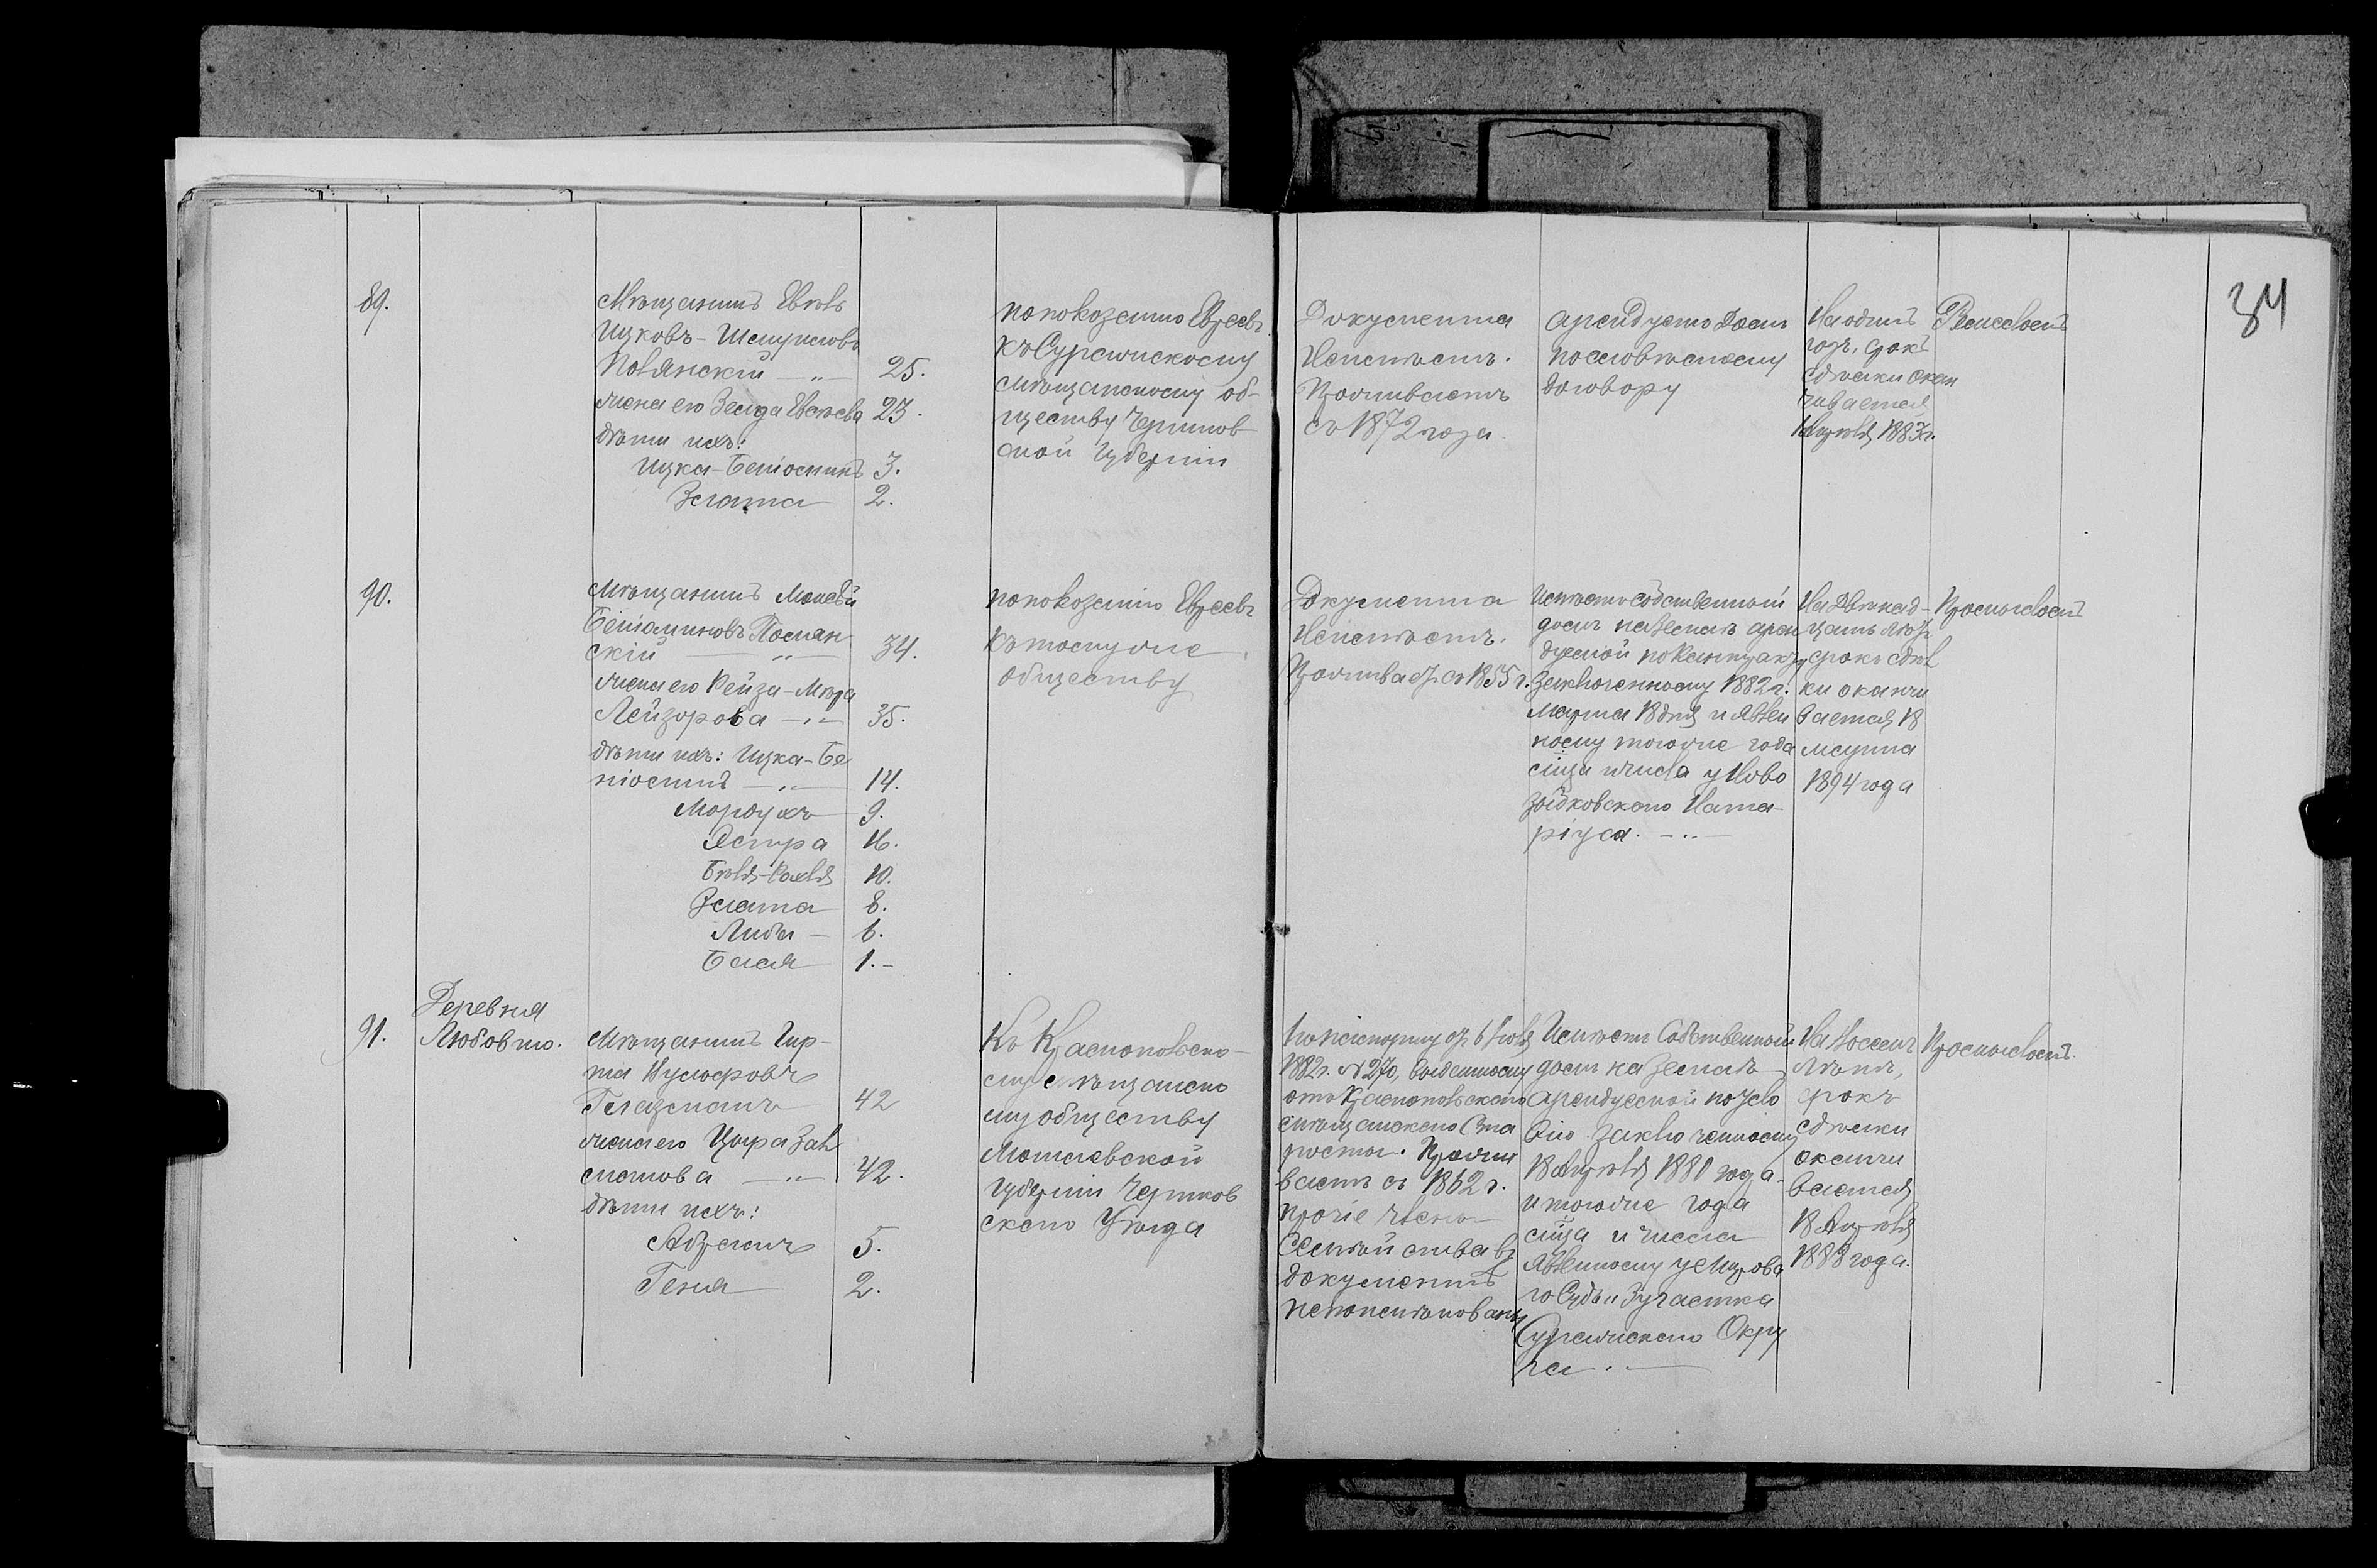 34
89.
Мѣщанинъ Евель
Ицковъ-Шмуиловъ
Полянскій — „ — 25.
жена его Зелда Евелева 23.
дѣти ихъ:
Ицка-Беніоминъ 3.
Злата 2.
по показанію Евреевъ
къ Суражскому
мѣщанскому об-
ществу Чернигов
ской Губерніи
Документа
Неимѣетъ.
Проживаетъ
съ 1872 года.
арендуетъ Домъ
по словѣсному
договору
На одинъ
годъ, срокъ
сдѣлки окан
чивается
1 Апрѣля 1883 г.
Ремесломъ
90.
Мѣщанинъ
Беніаминовъ Полян
скій — „ — 34.
жена его Рейза-Мера
Лейзорова — „ — 35.
дѣти ихъ: Ицка-Бе
ніоминъ — „ — 14.
Мордухъ 9.
Эстра 16.
Бейля-Рахля 10.
Злата 8.
Либа — 6.
Бася 1. –
по показанію Евреевъ
къ тому же
обществу
Документа
Неимѣетъ.
Проживаетъ съ 1855 г.
Имѣетъ собственный
домъ на землѣ арен
дуемой по контракту
заключенному 1882 г.
Марта 18 дня и явлен
ному того же года
сяца и числа у Ново
зыбковскаго Нота-
ріуса. — „ —
На Двѣнад-
цать лѣтъ
срокъ сдѣл
ки оканчи
вается 18
марта
1894 года
Промысломъ
Деревня
91. Любовшо.
Мѣщанинъ Гир-
ша
Глазманъ 42
жена его Цыра Зал
манова — „ — 42.
дѣти ихъ:
Абрамъ 5.
Геня 2.
Къ Краснопольско-
му мѣщанско
му обществу
Могилевской
губерніи Чериков
скаго Уѣзда
по паспорту отъ 6 Іюля
1882 г. № 270, выданному
отъ Краснопольскаго
мѣщанскаго Ста
росты. Прожи
ваетъ съ 1862 г.
прочіе члены
Семьи въ
документѣ
непоименованы
Имѣетъ Собственный
домъ на землѣ
арендуемой по усло
вію заключенному
18 Апрѣля 1880 года
и того же года
сяца и числа
явленному у Мирова
го Судьи 3 участка
Суражскаго Окру
га. —
На Восемь
Лѣтъ,
срокъ
сдѣлки
оканчи
вается
18 Апрѣля
1888 года.
Промысломъ.